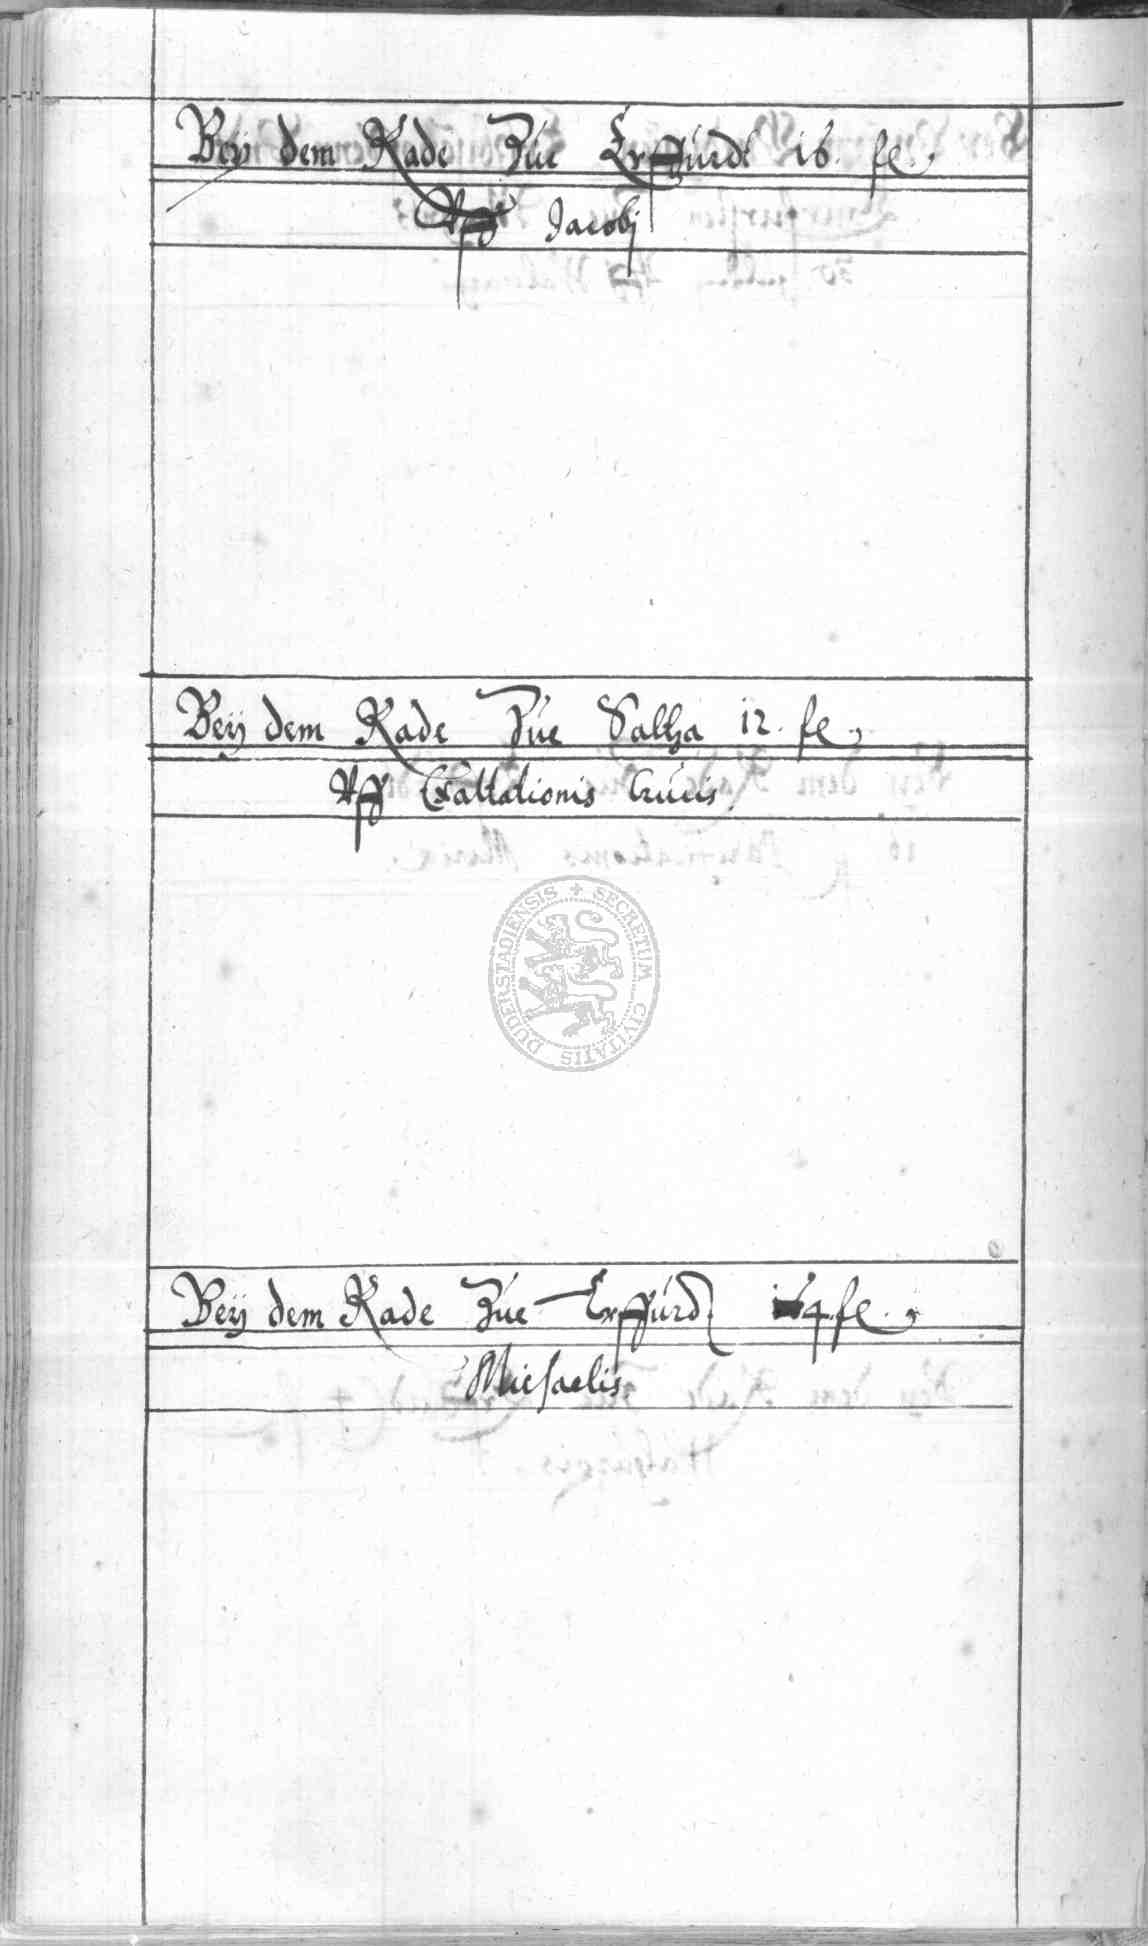 Beÿ dem Rade Zue Erffurdt 16. fl.
Vff Jacobj
Beÿ dem Rade Zue Saltza 12. fl.
Vff Exaltationis Crucis
SECRETUM CIVITATIS DUDERSTADIENSIS
Beÿ dem Rade Zue Erffurd 4 fl.
Michaelis